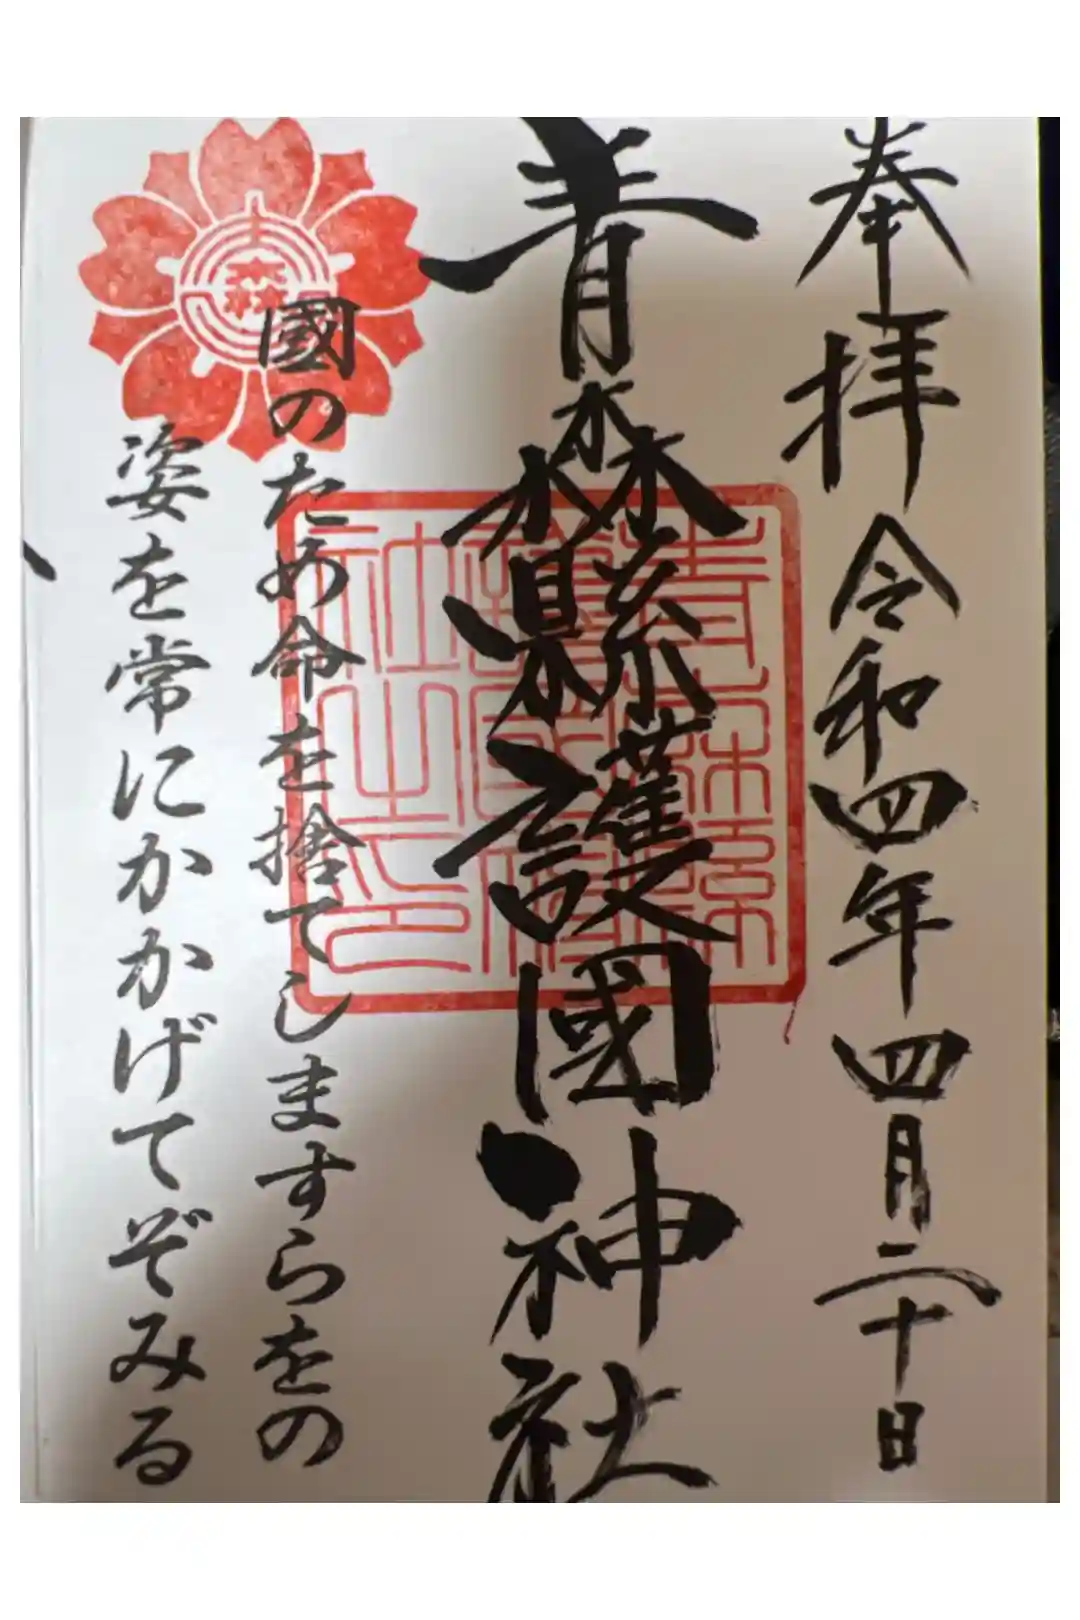 奉拝 令和四年四月二十日
青森縣護國神社
國のため命を捨てしますらをの
姿を常にかかげてぞみる
森